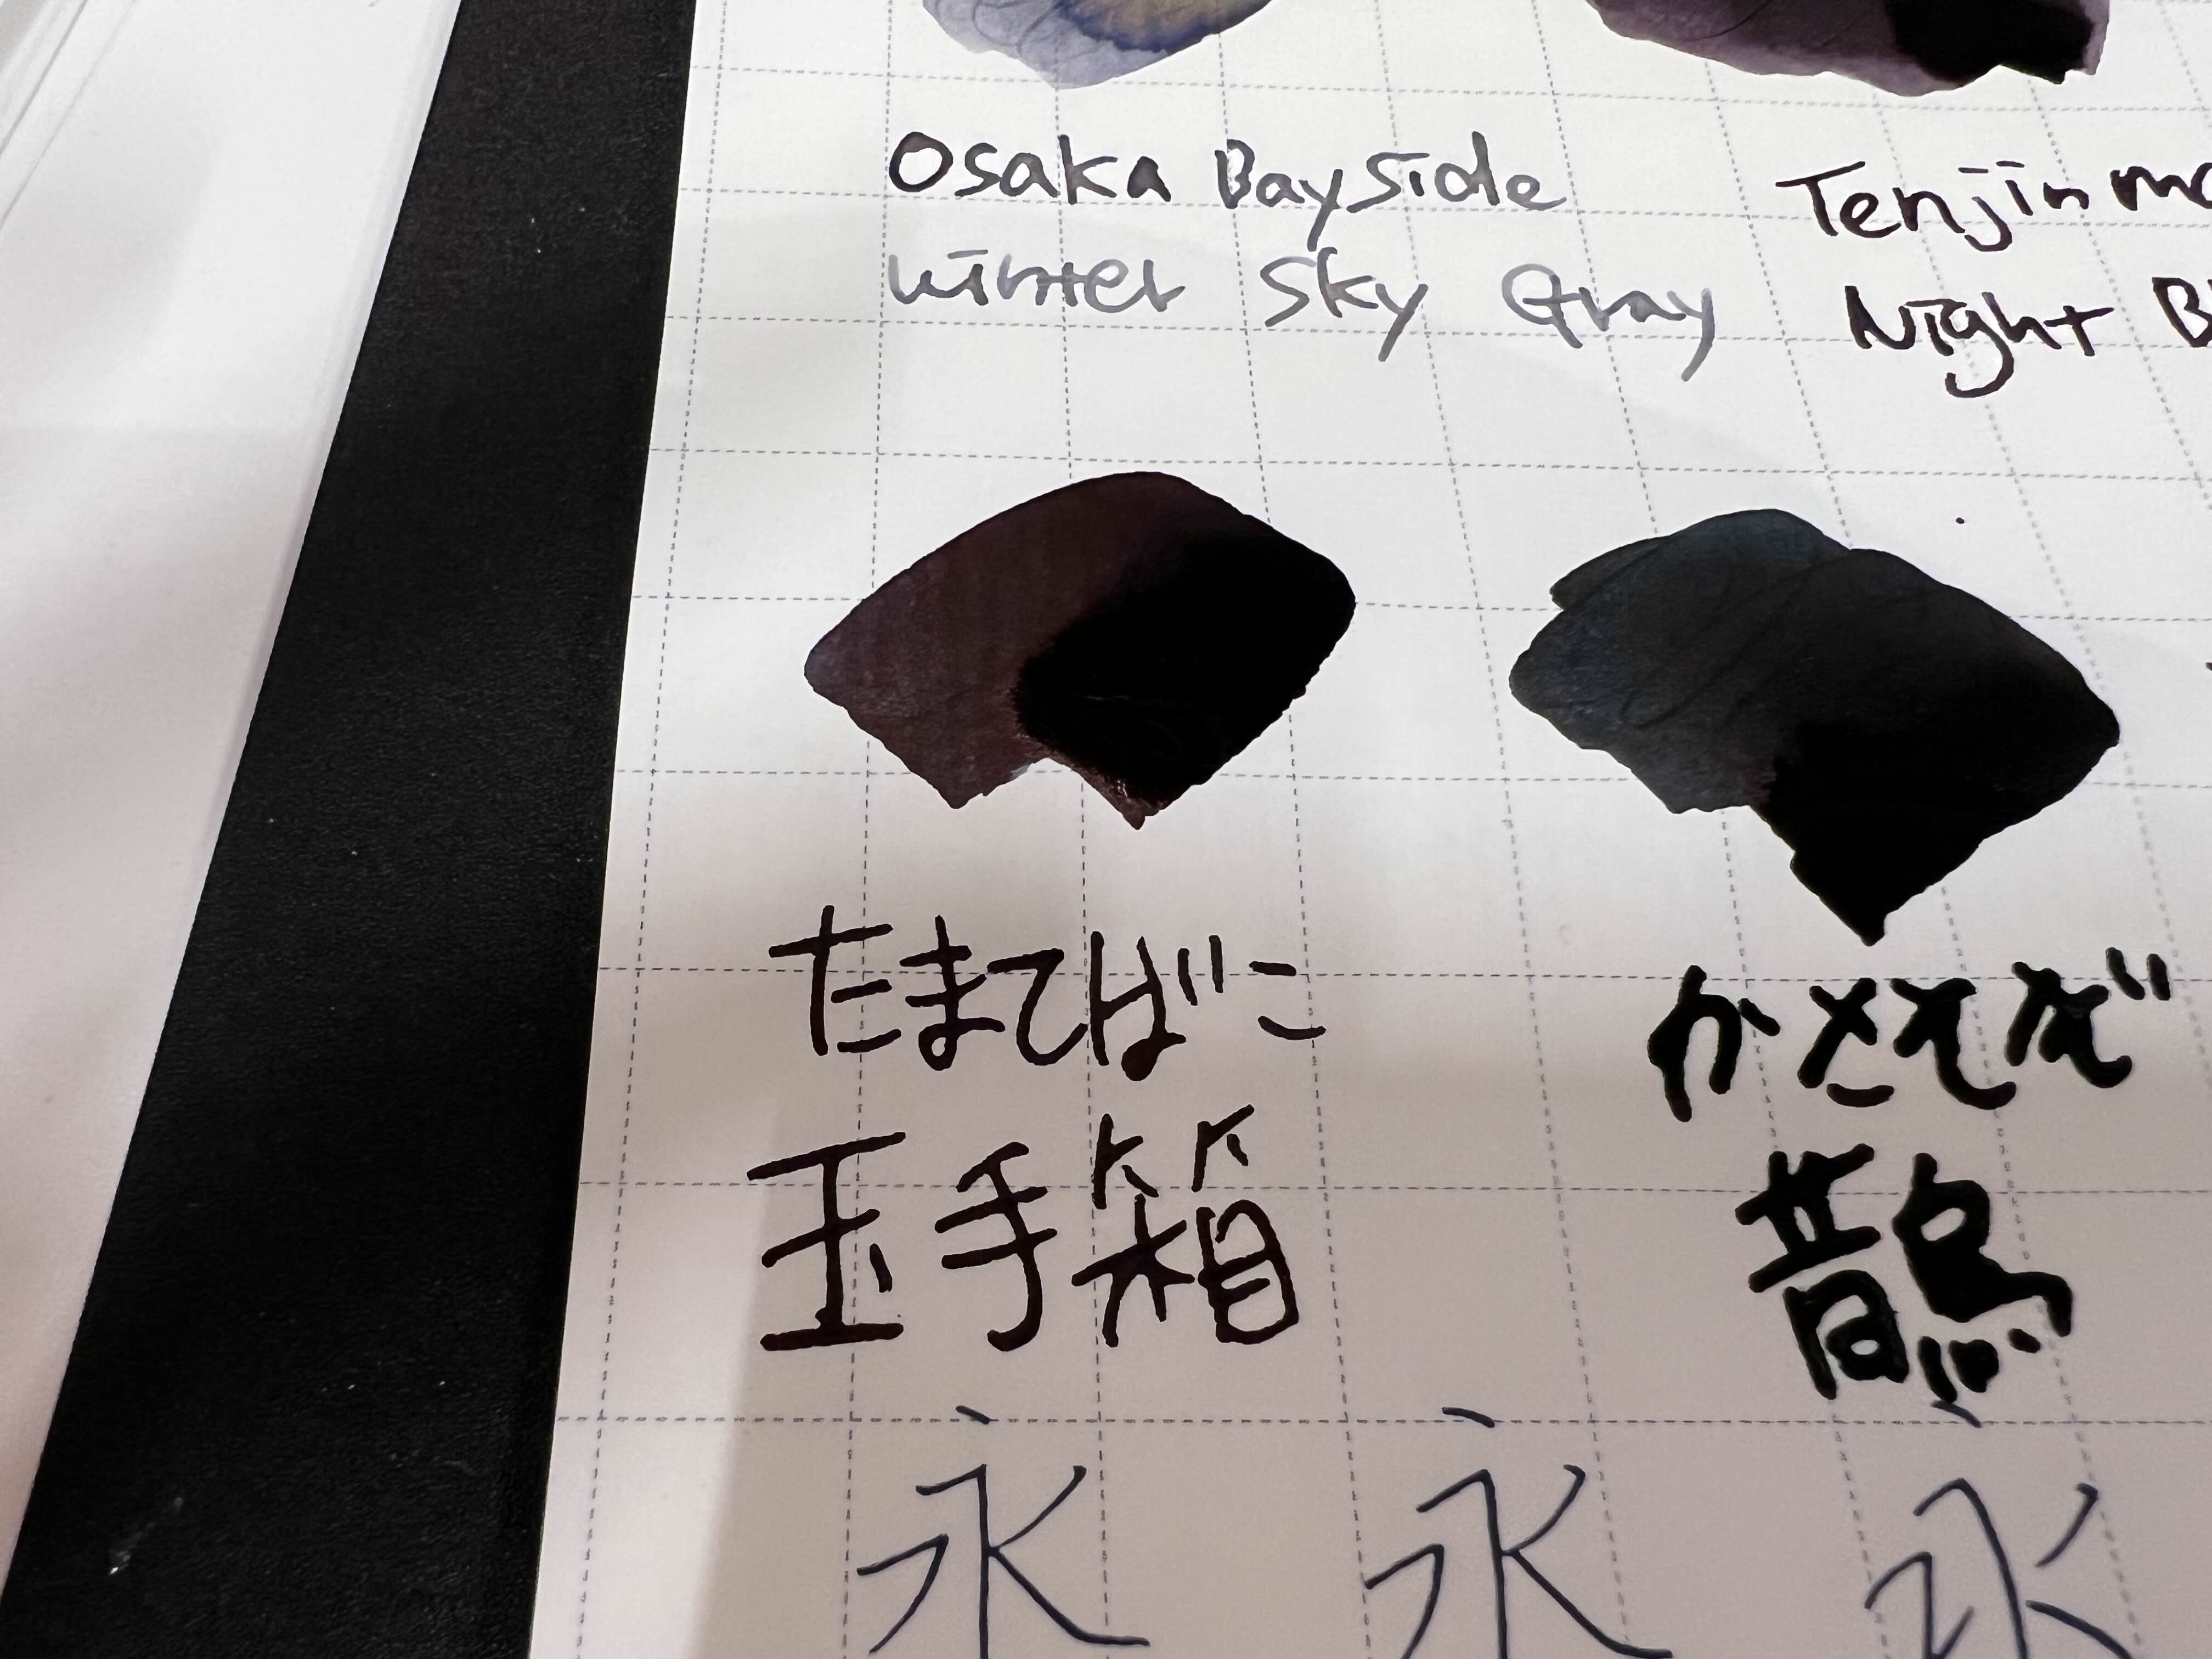 Osaka Bayside
Winter Sky Gray
Night
たまてばこ
玉手箱
かささぎ
鵲
永 永 永